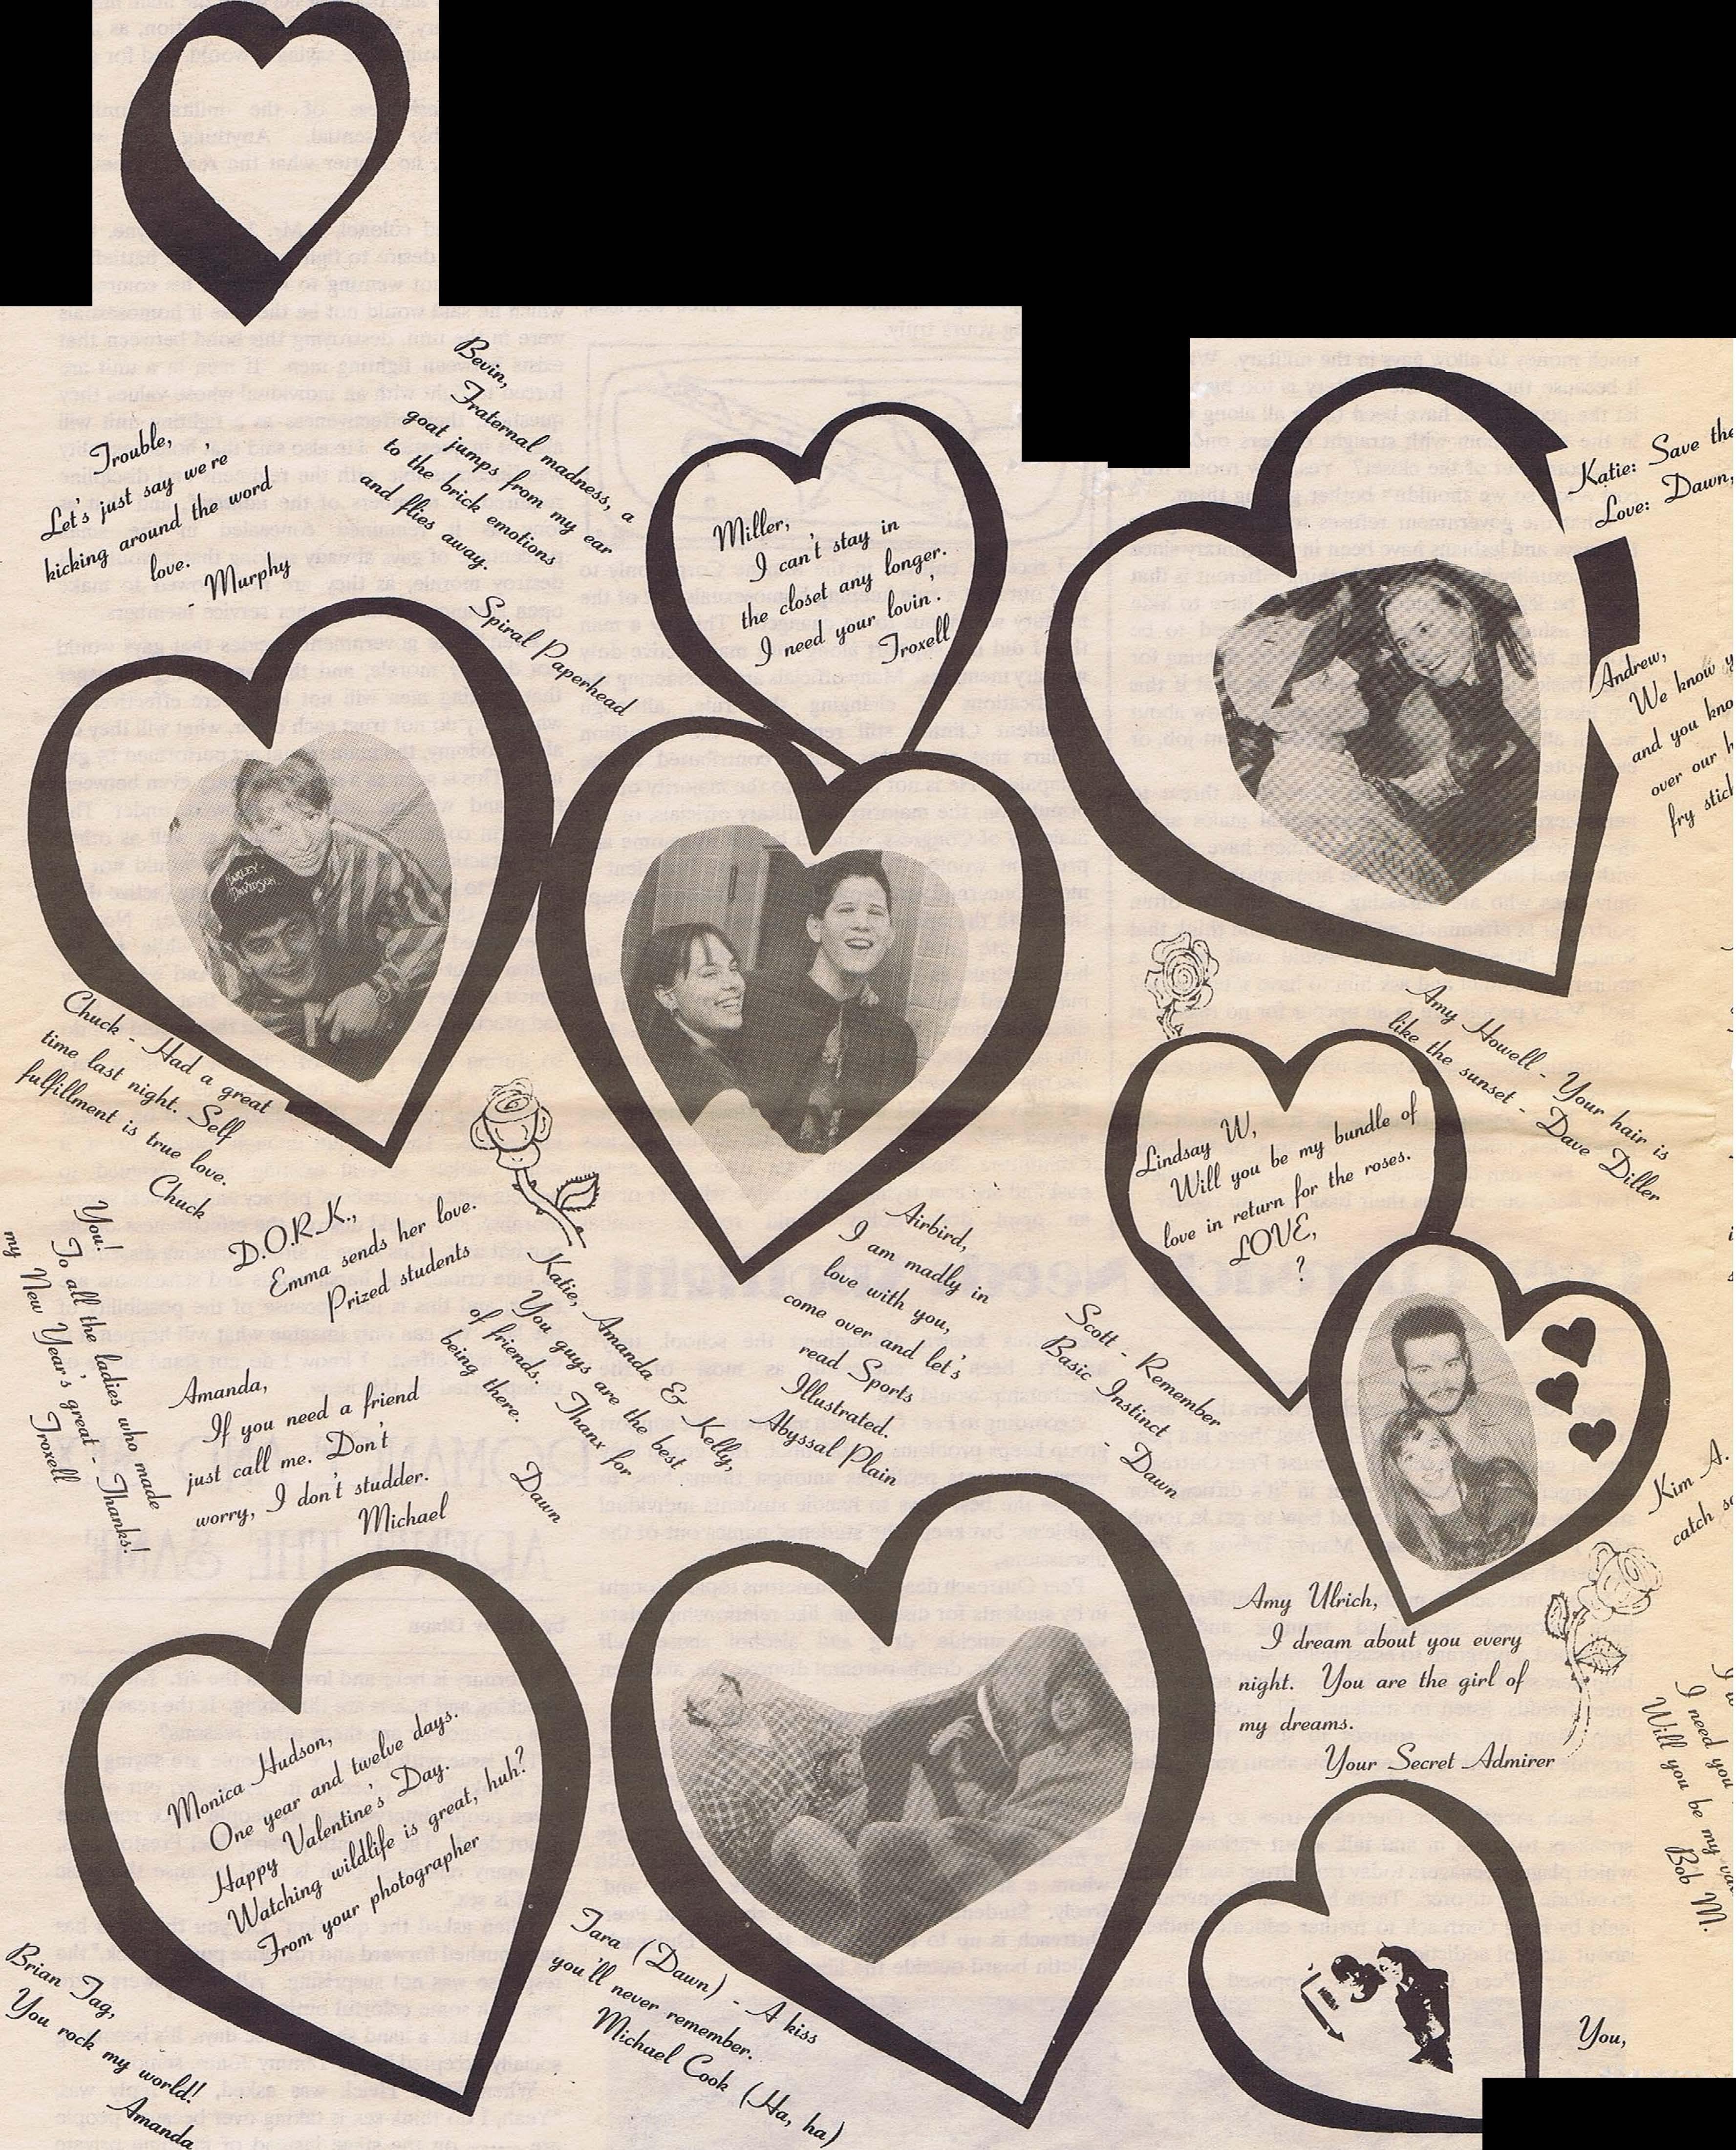 Bevin,
Fraternal madness, a
goat jumps from my ear
to the brick emotions
and flies away.
Spiral Paperhead
Trouble,
Let's just say we're
kicking around the word
love.
- Murphy
Miller,
I can't stay in
the closet any longer.
I need your lovin'.
Troxell
Katie: Save the
Love: Dawn,
Andrew,
We know y
and you kno
over our h
fry stic
HARLEY-
DAVIDSON
Chuck - Had a great
time last night. Self
fulfillment is true love.
Chuck
Amy Howell - Your hair is
like the sunset - Dave Diller
Lindsay W,
Will you be my bundle of
love in return for the roses.
LOVE,
?
D.O.R.K.,
Emma sends her love.
Prized students
You!
To all the ladies who made
my New Year's great - Thanks!
Troxell
Katie, Amanda & Kelly,
You guys are the best
of friends. Thanx for
being there.
Dawn
Airbird,
I am madly in
love with you,
come over and let's
read Sports
Illustrated.
Abyssal Plain
Scott - Remember
Basic Instinct
- Dawn
Amanda,
If you need a friend
just call me. Don't
worry, I don't studder.
Michael
Kim A.
catch
Amy Ulrich,
I dream about you every
night. You are the girl of
my dreams.
Your Secret Admirer
I need you
Will you be my
Bob M.
Monica Hudson,
One year and twelve days.
Happy Valentine's Day.
Watching wildlife is great, huh?
From your photographer
Tara (Dawn) - A kiss
you'll never remember.
Michael Cook (Ha, ha)
Brian Tag,
You rock my world!
Amanda
You,